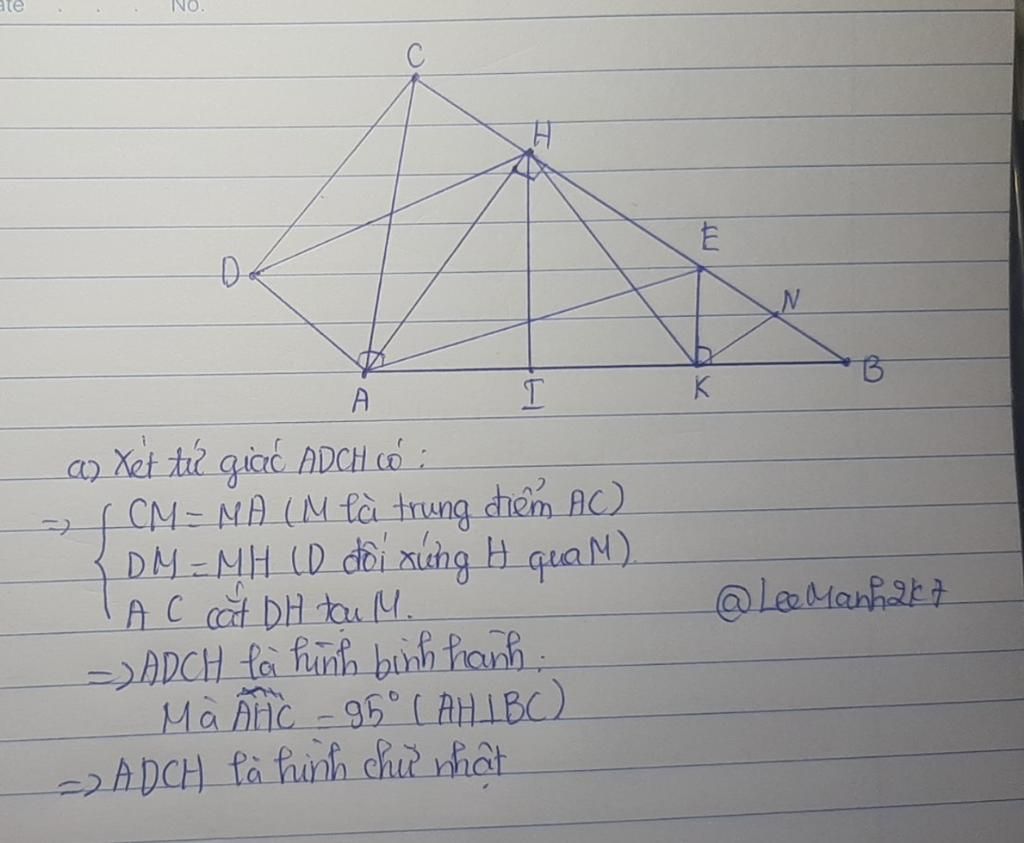 ate . . . No.
C
H
E
D
N
B
A
I
K
a) Xét tứ giác ADCH có:
=> { CM = MA (M là trung điểm AC)
DM = MH (D đối xứng H qua M)
AC cắt DH tại M.
@LeeManh2k7
=> ADCH là hình bình hành.
Mà AHC = 95° (AH⊥BC)
=> ADCH là hình chữ nhật